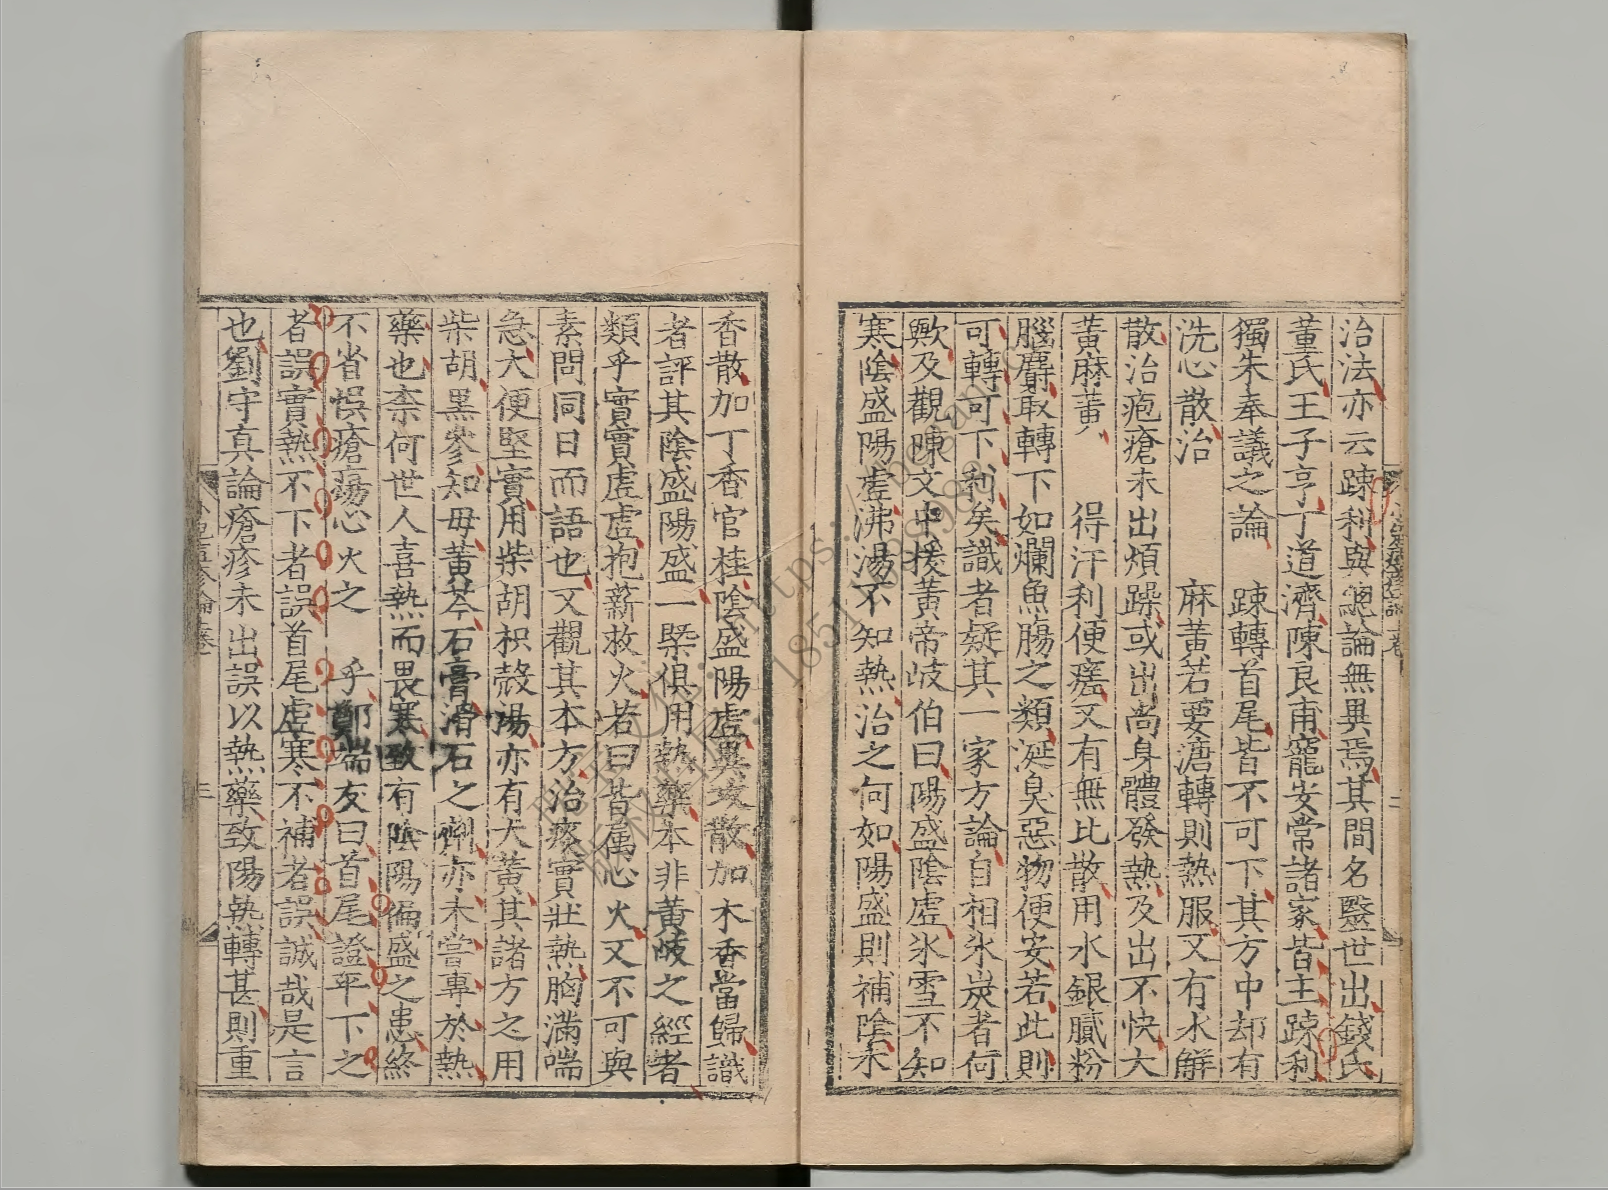 治法亦云踈利與總論無異焉其間名醫世出錢氏
董氏王子亨丁道濟陳良甫龐安常諸家皆主踈利
獨朱奉議之論　踈轉首尾皆不可下其方中却有
洗心散治　麻黃若要溏轉則熱服又有水解
散治疱瘡未出煩躁或出尚身體發熱及出不快大
黃麻黃　得汗利便瘥又有無比散用水銀膩粉
腦麝取轉下如爛魚腸之類涎臭惡物便安若此則
可轉可下利矣識者疑其一家方論自相氷炭者何
歟及觀陳文中援黃帝岐伯曰陽盛陰虛氷雪不知
寒陰盛陽虛沸湯不知熱治之何如陽盛則補陰木
香散加丁香官桂陰盛陽虛異攻散加木香當歸識
者評其陰盛陽盛一槩俱用熱藥本非黃岐之經者
類乎實實虛虛抱薪救火若曰皆属心火又不可與
素問同日而語也又觀其本方治痰實壯熱胸滿喘
急大便堅實用柴胡枳殼湯亦有大黃其諸方之用
柴胡黑參知母黃芩石膏滑石之劑亦未嘗專於熱
藥也柰何世人喜熱而畏寒致有陰陽偏盛之患終
不省悞瘡瘍心火之　乎鄭端友曰首尾證平下之
者誤實熱不下者誤首尾虛寒不補者誤誠哉是言
也劉守真論瘡疹未出誤以熱藥致陽熱轉甚則重